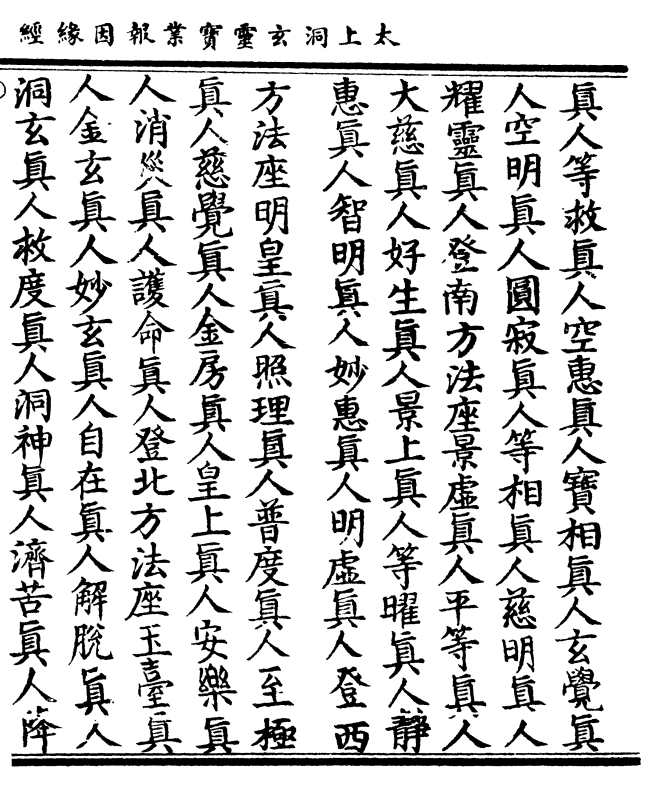 太上洞玄靈寶業報因緣經
眞人等救眞人空惠眞人寶相眞人玄覺眞
人空明眞人圓寂眞人等相眞人慈明眞人
耀靈眞人登南方法座景虛眞人平等眞人
大慈眞人好生眞人景上眞人等曜眞人靜
惠眞人智明眞人妙惠眞人明虛眞人登西
方法座明皇眞人照理眞人普度眞人至極
眞人慈覺眞人金房眞人皇上眞人安樂眞
人消災眞人護命眞人登北方法座玉臺眞
人金玄眞人妙玄眞人自在眞人解脫眞人
洞玄眞人救度眞人洞神眞人濟苦眞人降